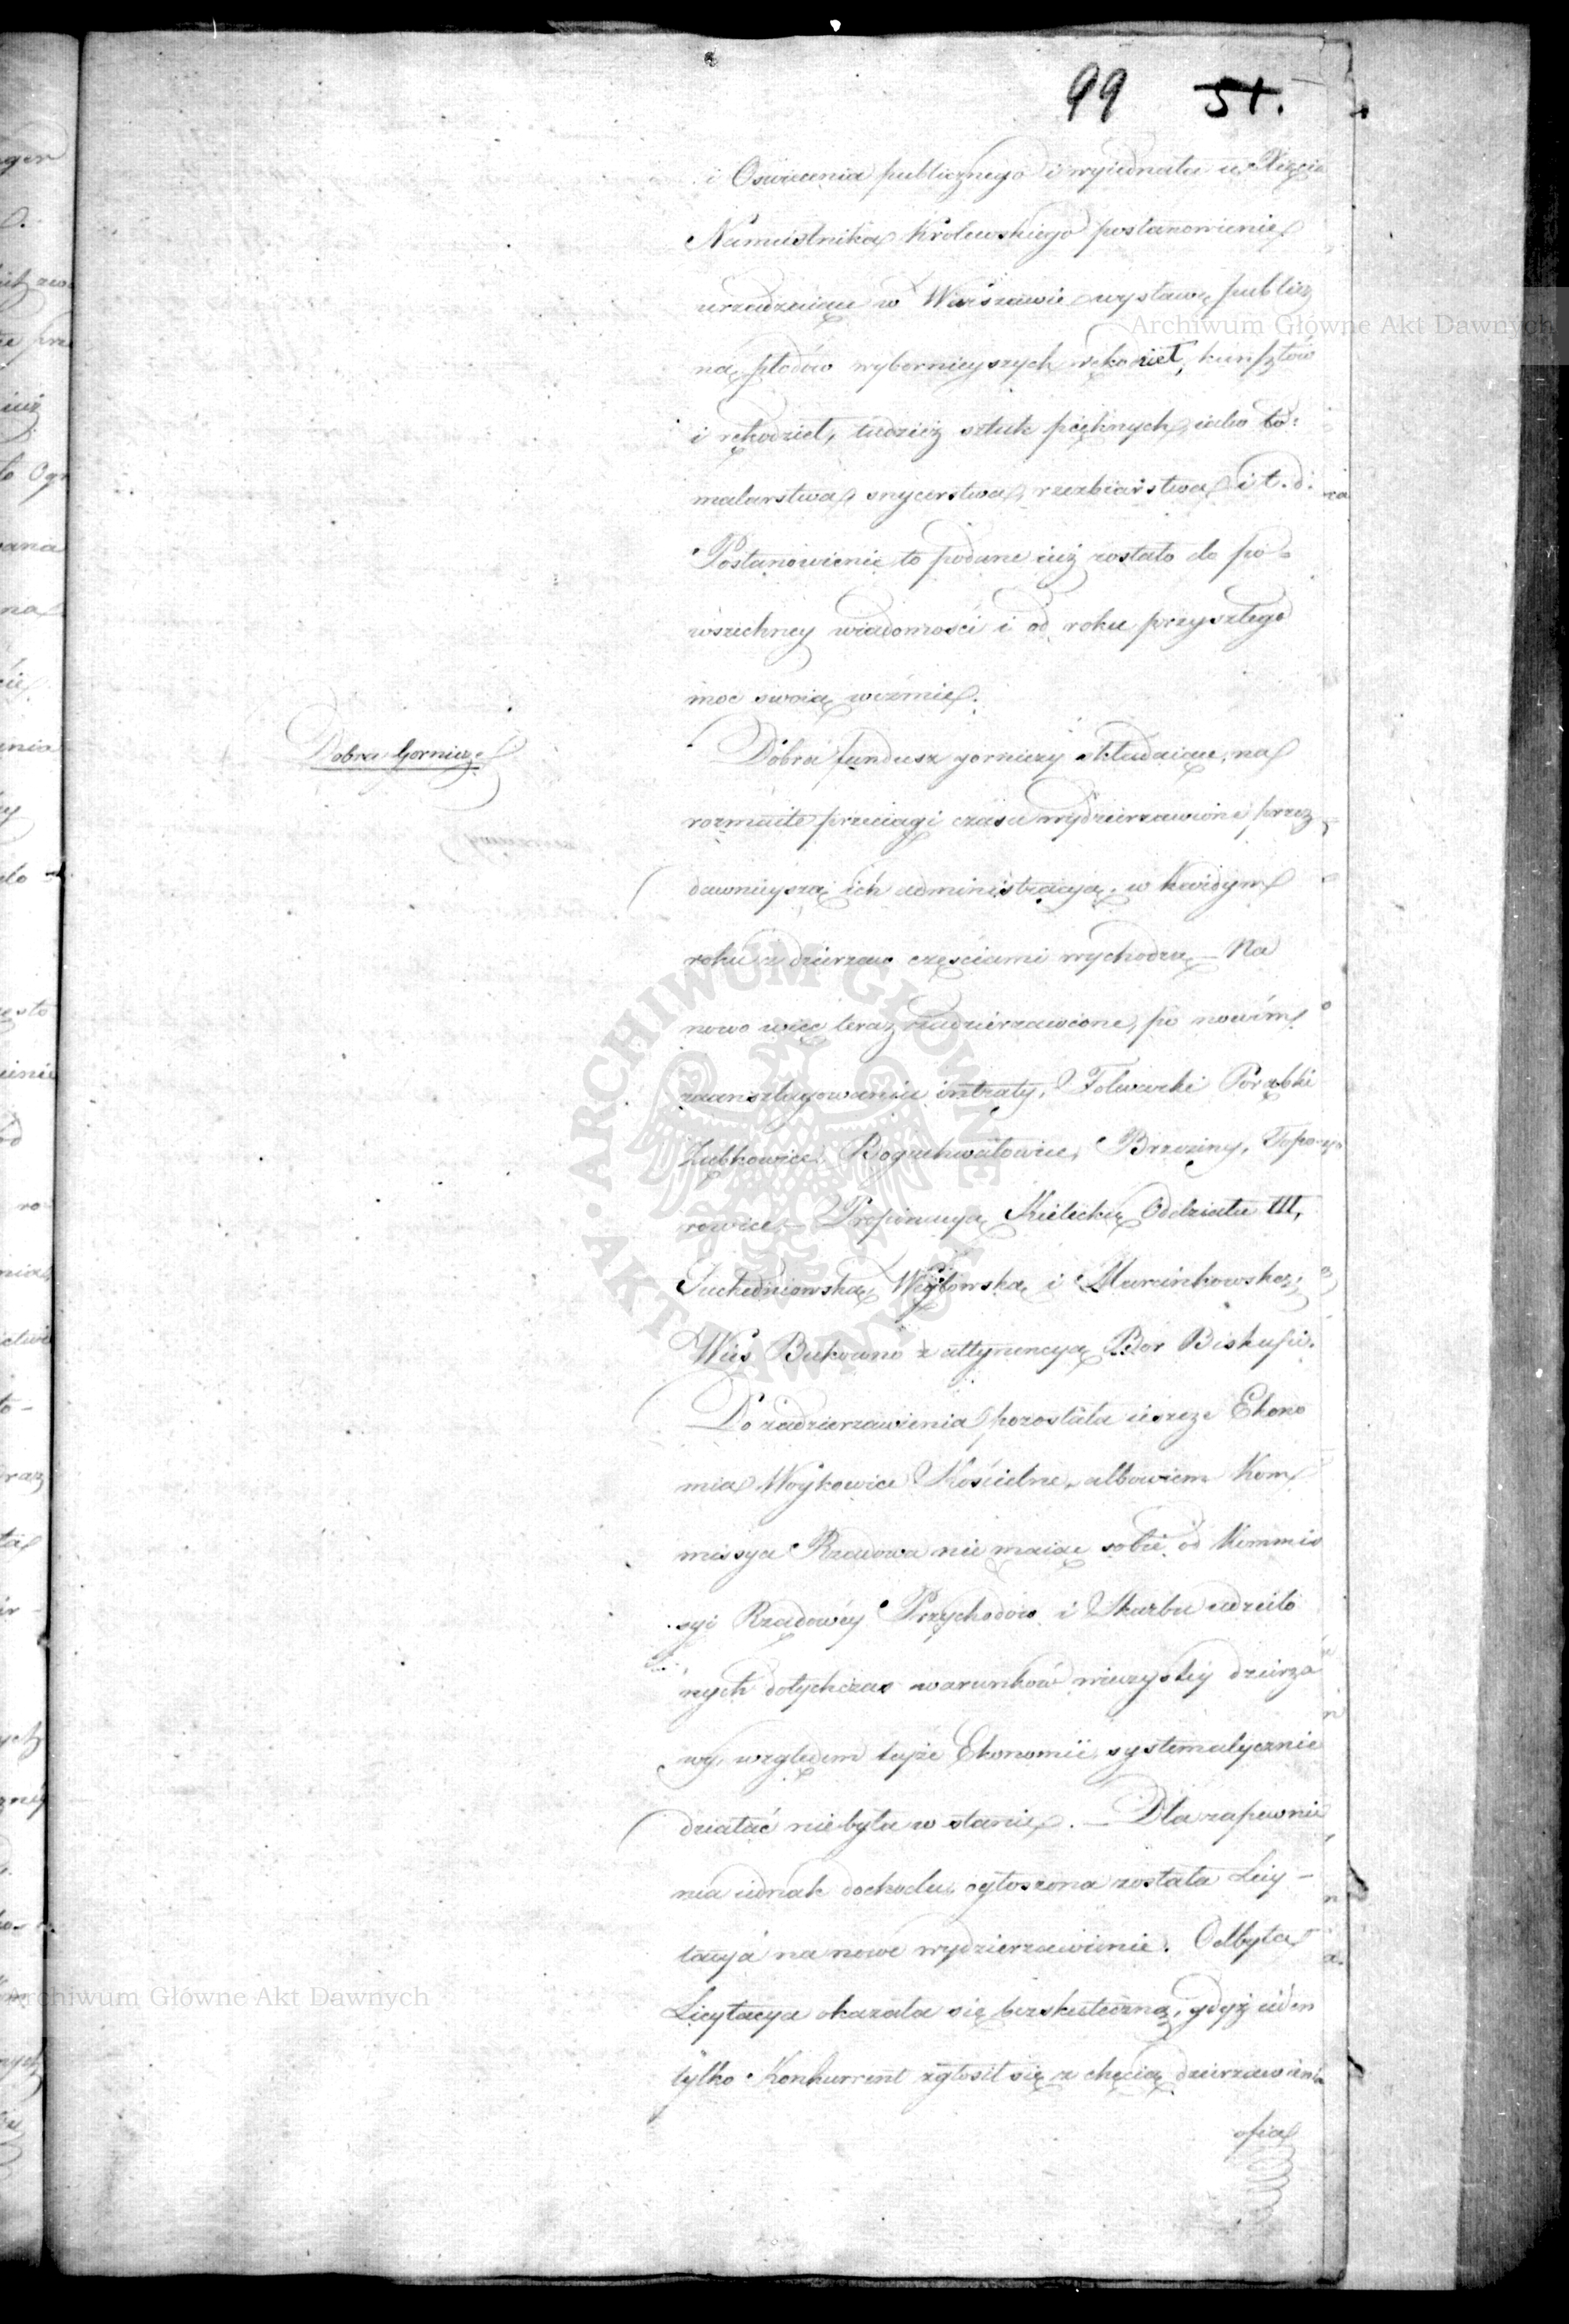 99 51.
i Oswiecenia publicznego i wyiednała u Xięcia
Namiestnika Krolewskiego postanowienie
urządzaiące w Warszawie wystawę publicz
ną płodów wybornieyszych rękodzieł, kunsztów
i rękodzieł, tudzież sztuk pięknych, iako to:
malarstwa, snycerstwa, rzezbiarstwa i t. d.
Postanowienie to podane iuż zostało do po
wszechney wiadomości i od roku przyszłego
moc swoią weźmie.
Dobra Gornicze
Dobra fundusz gorniczy składaiące, na
rozmaite przeciągi czasu wydzierzawione przez
dawnieyszą ich administracyą, w każdym
roku z dzierzaw częściami wychodzą – Na
nowo więc teraz zadzierzawione, po nowém
zaansztagowaniu intraty, Folwarki Porąbki
Ząbkowice, Boguchwałowice, Brzeziny, Topo
rowice, – Propinacya Kielecka Oddziału III,
Suchedniowska, Wątowska i Marcinkowska;
Wieś Bukowno z attynencyą Bor Biskupi.
Do zadzierzawienia pozostała ieszcze Ekono
mia Woykowice Kościelne, albowiem Kom
missya Rządowa nie maiąc sobie od Kommis
syi Rządowéy Przychodów i Skarbu udzielo
nych dotychczas warunków wieczystéy dzierża
wy, względem teyże Ekonomii, systematycznie
działać nie była w stanie. – Dla zapewnie
nia iednak dochodu, ogłoszona została Licy –
tacya na nowe wydzierzawienie. Odbyta
Licytacya okazała się bezskuteczną, gdyż ieden
tylko Konkurrent zgłosił się z chęcią dzierzawienia
ofia
Archiwum Główne Akt Dawnych
Archiwum Główne Akt Dawnych
ARCHIWUM GŁÓWNE
AKT DAWNYCH